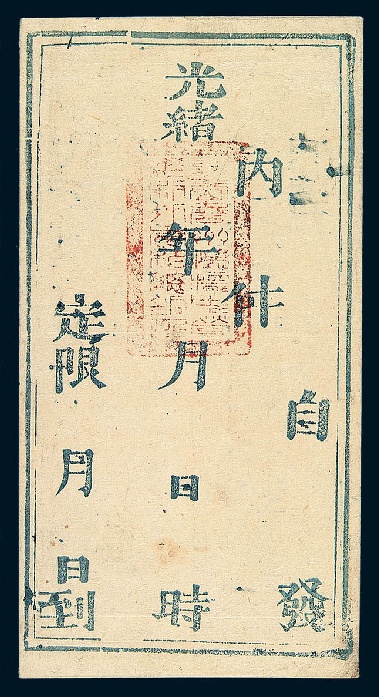 自發
內件
光緒年月日時
定限月日到